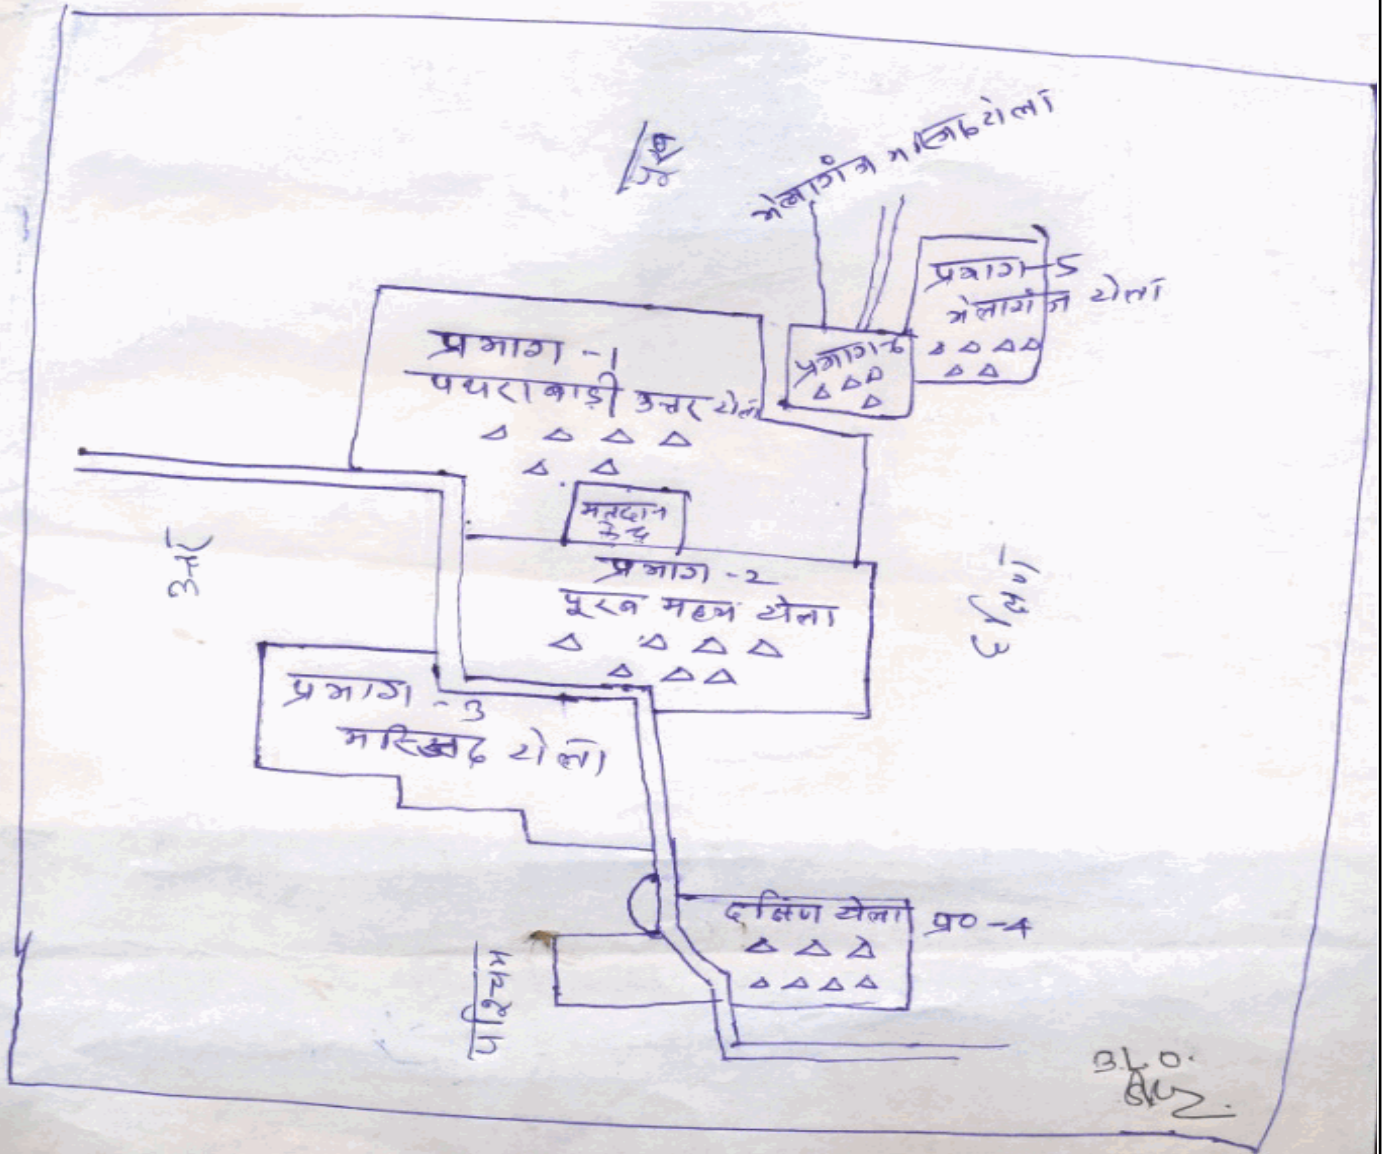 पूरब
मेलागंज मस्जिद टोला
प्रभाग-5
मेलागंज टोला
प्रभाग-6
प्रभाग-1
पथराबाड़ी उत्तर टोला
मतदान
केन्द्र
उत्तर
दक्षिण
प्रभाग-2
पूरब महल टोला
प्रभाग-3
मस्जिद टोला
दक्षिण टोला प्र०-4
पश्चिम
B.L.O.